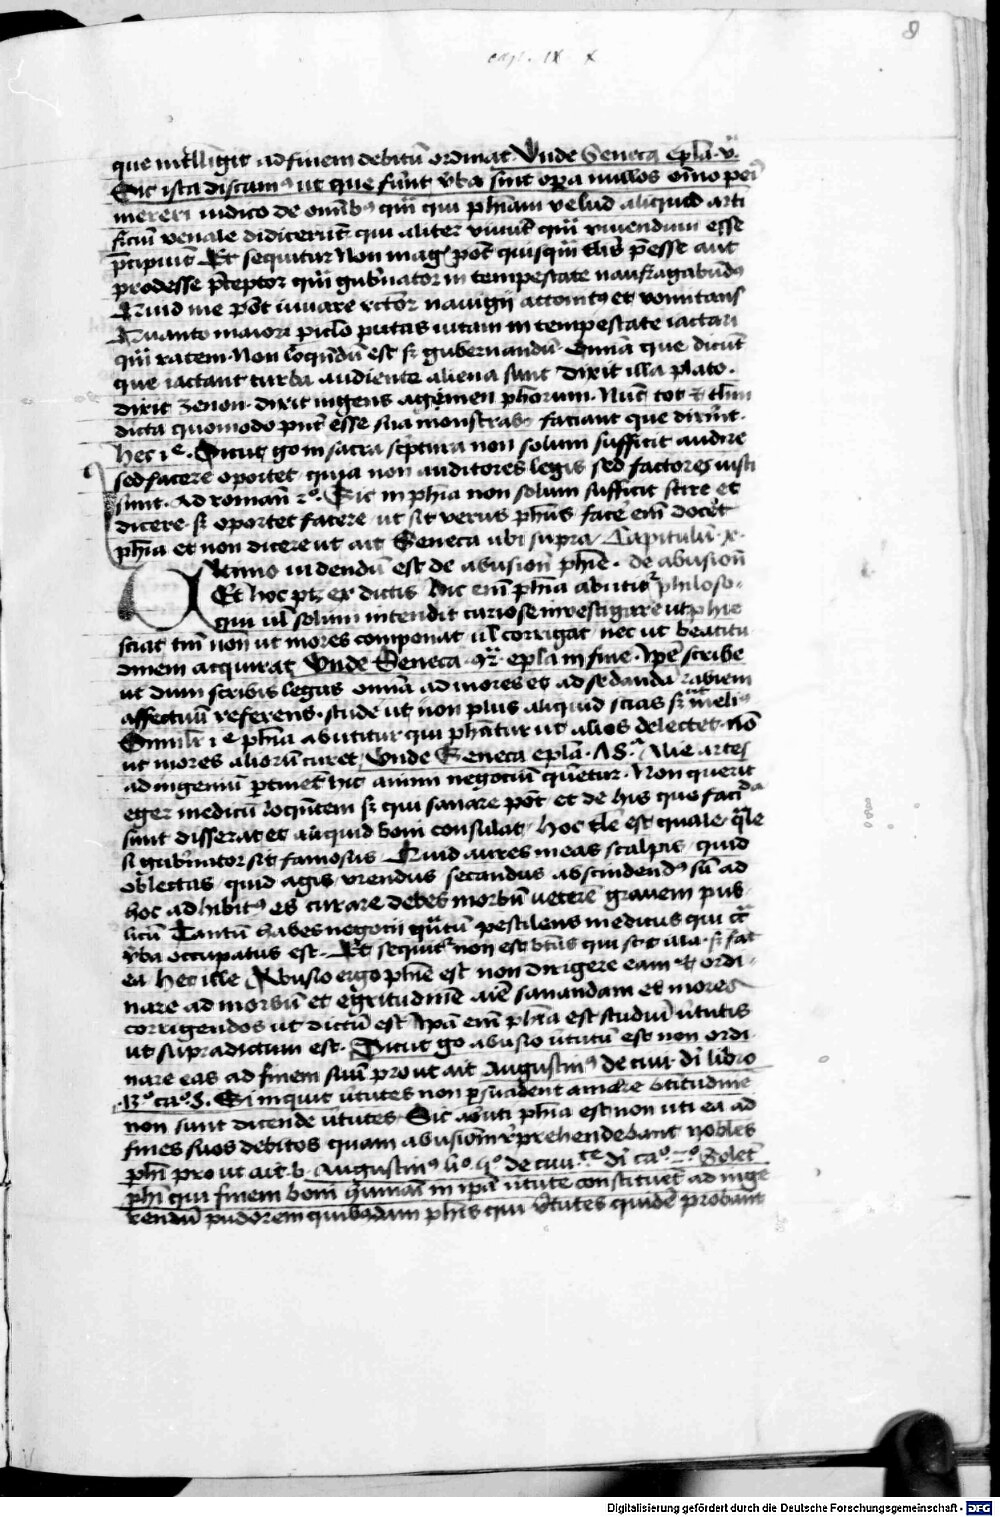 8
cap. IX X
que intelligit ad finem debitū ordinat. Vnde Seneca epla. v.
Sic ista discamꝰ ut que fūnt v̄ba sint oꝑa nullos oīno peiꝰ
mereri iudico de omībꝰ quā qui phīam velud aliquid arti
ficiū venale didicerūt qui aliter viuūt quā viuendum esse
p̄cipiūt Et sequitur Non magꝭ pōt quisquā talis p̄esse aut
prodesse p̄ceptor quā gub̄nator in tempestate naufragabūdꝰ
Quid me pōt iuuare rector nauigij attonitꝰ et vomitans
Quanto maiori piclo putas uitam in tempestate iactari
quā ratem. Non loquēdū est sꝫ gubernandū. Omīa que dicūt
que iactant turba audiente aliena sunt dixit illa plato.
dixit zenon. dixit ingens agmen phōrum. Nūc tot
dicta quomodo pnt esse sua monstrabo faciant que dixīnt.
hec ie. Sicut go in sacra sc̄ptura non solum sufficit audire
sed facere oportet quia non auditores legis sed factores iusti
sūnt. Ad roman 2o. Sic in phīa non solum sufficit scire et
dicere. sꝫ oportet facere ut sit verus phūs face em̄ docet
phīa et non dicere ut ait Seneca ubi supra Capitulū x.
Vltimo uidendū est de abusiōn phīe. de abusiōn
Et hoc ptꝫ ex dictis hic em̄ phīa abutitꝰ philoso-
qui ul solum intendit curiose inuestigare ut phie
sciat tm̄ non ut mores componat ul corrigat nec ut beatitu
dinem acquirat Vnde Seneca epla in fine. Ipē scribe
ut dum scribis legas omīa ad mores et ad sedanda rabiem
affectuū referens. stude ut non plus aliquid scias sꝫ ut meliꝰ
Similr ie phīa abutitur qui phatur ut alios delectet. nō
ut mores aliorū curet Vnde Seneca epla. Alie artes
ad ingeniū pertinēt hic animi negociū queritur. Non querit
eger medicū loquētem sꝫ qui sanare pōt et de his que facienda
sūnt disserat et aliquid boni consulat hoc tale est quale qrꝛe
si gub̄nator sit famosus. Quid aures meas scalpis quid
oblectas quid agis urendus secandus abscindendꝰ sū ad
hoc adhibitꝰ es curare debes morbū veterē grauem pub
licū Tantū habes negocij quātū pestilens medicus qui c̄ca
v̄ba occupatus est. Et sequitꝛ non est bt̄us qui scit illa. sꝫ facit
ea hec ille Abusio ergo phīe est non dirigere eam et ordi-
nare ad morbū et egritudinē aīe sanandam et mores
corrigendos ut dictū est Ipā em̄ phīa est studiū v̄tutis
ut supradictum est. Sicut go abusio v̄tutū est non ordi
nare eas ad finem suū prout ait Augustinꝰ de ciui. dī libro
Si inquit v̄tutes non p̄suadent amare btitudine
non sunt dicende v̄tutes. Sic abuti phīa est non uti ea ad
fines suos debitos quam abusiōm rep̄hendebant nobles
phī prout ait b. Augustinꝰ li° 5° de ciui.te dī ca° Solet
phī qui finem boni humāi in ipā v̄tute constituēt ad inge
rendū pudorem quibusdam phīs qui v̄tutes quidē probant
Digitalisierung gefördert durch die Deutsche Forschungsgemeinschaft - DFG